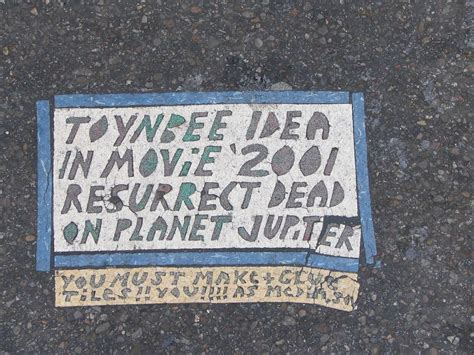 TOYNBEE IDEA
IN MOViE '2001
RESURRECT DEAD
ON PLANET JUPITER
YOU MUST MAKE + GLUE
TILES!! YOU!!!! AS MEDIA